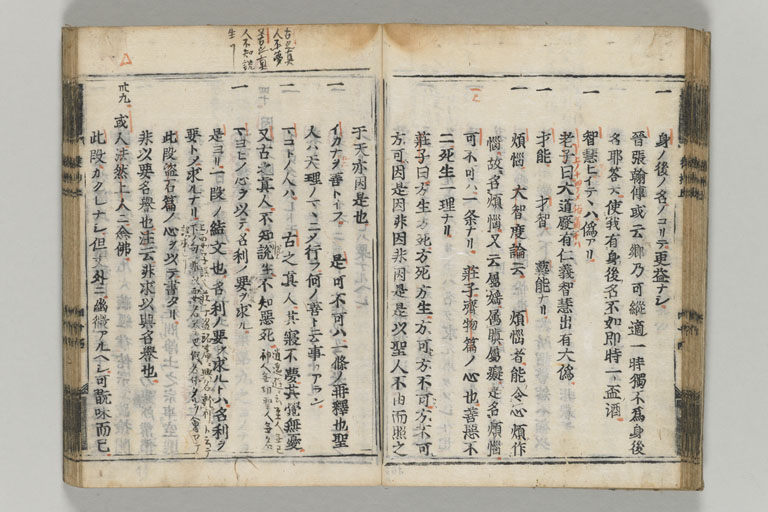 一 身ノ後ノ名ノコリテ更益ナシ
晉張翰傳或云卿乃可縱適一時獨不爲身後
名耶答天使我有身後名不如即時一盃酒
一 智慧ヒイデヽハ僞アリ
老子曰大道廢有仁義智慧出有大僞
一 才能 才智 藝能ナリ
一 煩惱 大智度論云 煩惱者能令心煩作
惱故名煩惱又云屬婬屬瞋屬癡是名煩惱
可不可ハ一條ナリ 莊子齊物篇ノ心也善惡不
二死生一理ナリ
莊子曰方生方死方死方生方可方不可方不可
方可因是因非因非因是是以聖人不由而照之
于天亦因是也
一 イカナルヲ善トイフ 是可不可ハ一條ノ再釋也聖
人ハ天理ノマヽニ行フ何ノ善ト云事カアラン
一 マコトノ人ハ 古之真人其寢不夢其覺無憂
又古之真人不知說生不知惡死
一 マヨヒノ心ヲ以テ名利ノ要ヲ求ル
是ヨリ一段ノ結文也名利ノ要ヲ求ルトハ名利ヲ
要トノ求ルナリ
此段盜石篇ノ心ヲ以テ書タリ
非以要名譽也注云非求以與名譽也
卅九 或人法然上人ニ念佛
此段カクレナシ但文外ニ尙徴アルヘシ可翫味而已
古之真
人不夢
古之真
人不知說
生